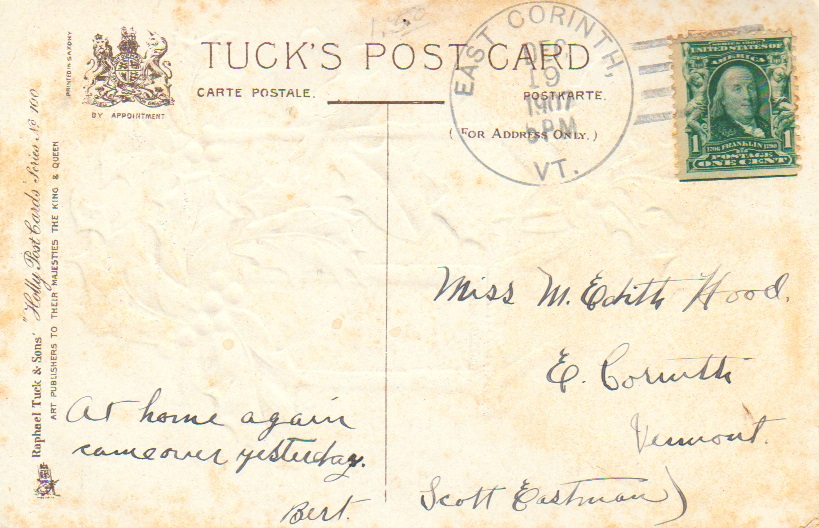 TUCK'S POST CARD
CARTE POSTALE.
POSTKARTE.
(FOR ADDRESS ONLY.)
BY APPOINTMENT
PRINTED IN SAXONY
Raphael Tuck & Sons' "Holly Post Cards" Series No 100
ART PUBLISHERS TO THEIR MAJESTIES THE KING & QUEEN
EAST CORINTH,
DEC
19
1907
5 PM
VT.
UNITED STATES OF
AMERICA
1 1
1706 FRANKLIN 1790
POSTAGE
ONE CENT
Miss M. Edith Hood.
E. Corinth
Vermont.
At home again
came over yesterday.
Bert.
Scott Eastman)